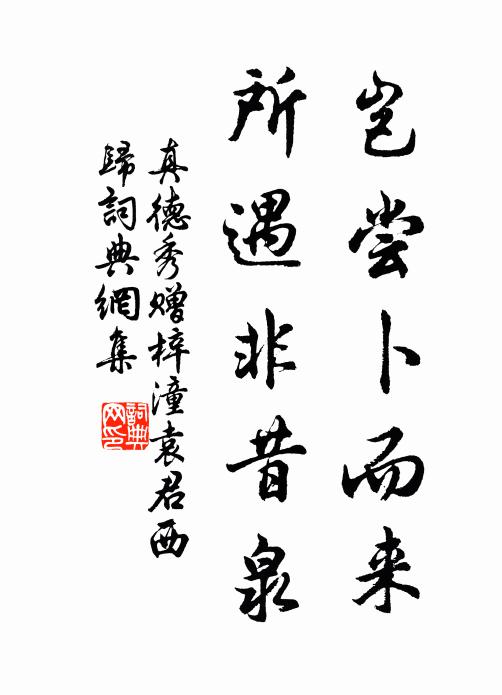 岂尝卜而来
所遇非昔泉
真德秀赠梓潼袁君西
歸詞典網集
詞典网印